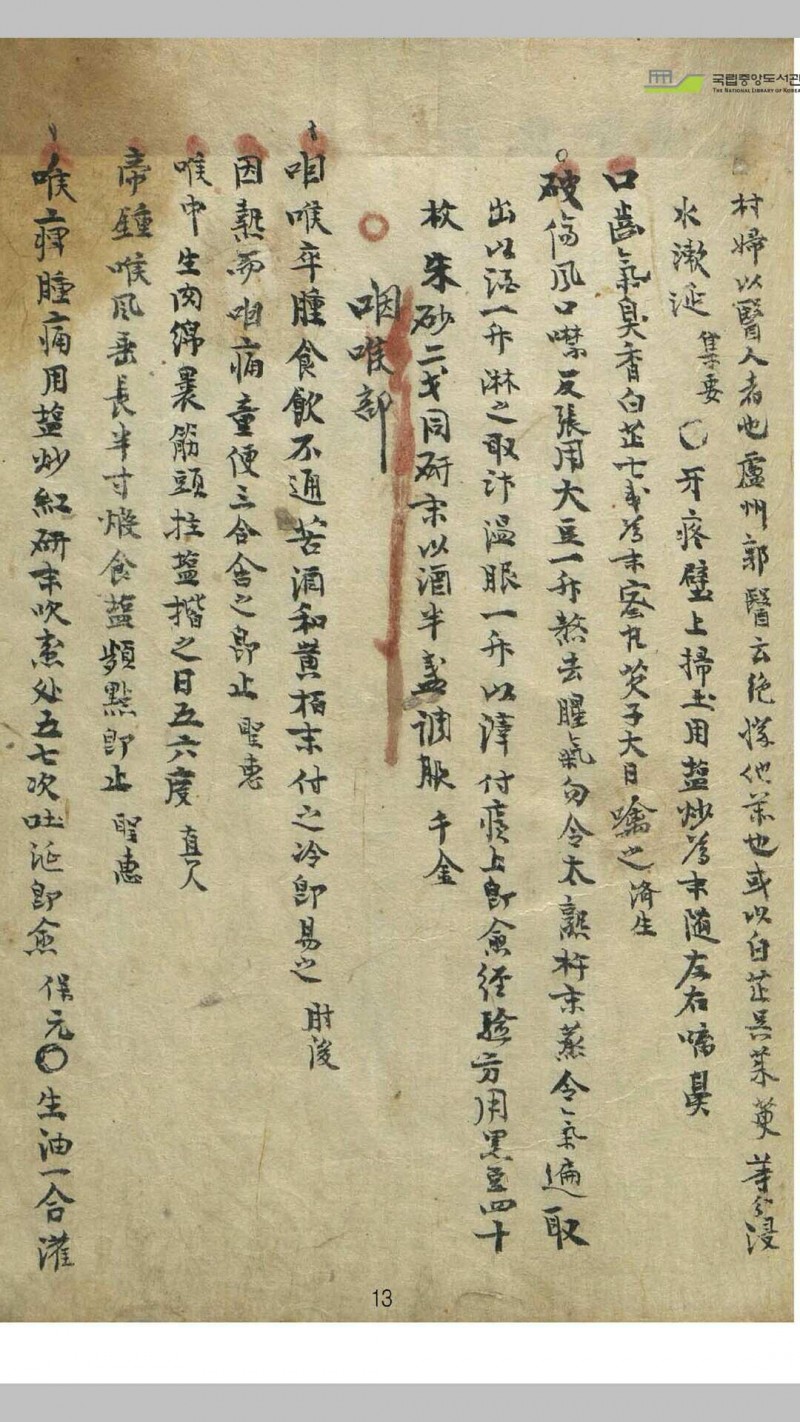 국립중앙도서관
THE NATIONAL LIBRARY OF KOREA
村婦以醫人者也盧州郭醫云絶勝他藥也或以白芷吳茱萸等分浸
水漱涎 集要 ○牙疼壁上掃土用盐炒為末隨左右㗜鼻
口齒氣臭香白芷七戔為末蜜丸芡子大日噙之 済生
破傷風口噤反張用大豆一升熬去腥氣勿令太熟杵末蒸令氣遍取
出以酒一升淋之取汁温服一升以滓付瘡上即愈經驗方用黒豆四十
枚朱砂二戈同硏末以酒半盞調服 千金
○ 咽喉部
咽喉卒腫食飮不通苦酒和黄栢末付之冷即易之 肘後
因熱而咽痛童便三合含之即止 聖惠
喉中生肉綿裹筋頭拄盐揩之日五六度 直人
帝鍾喉風垂長半寸煅食盐頻點即止 聖惠
喉痺腫痛用盐炒紅硏末吹患处五七次吐涎即愈 保元 ○生油一合灌
13